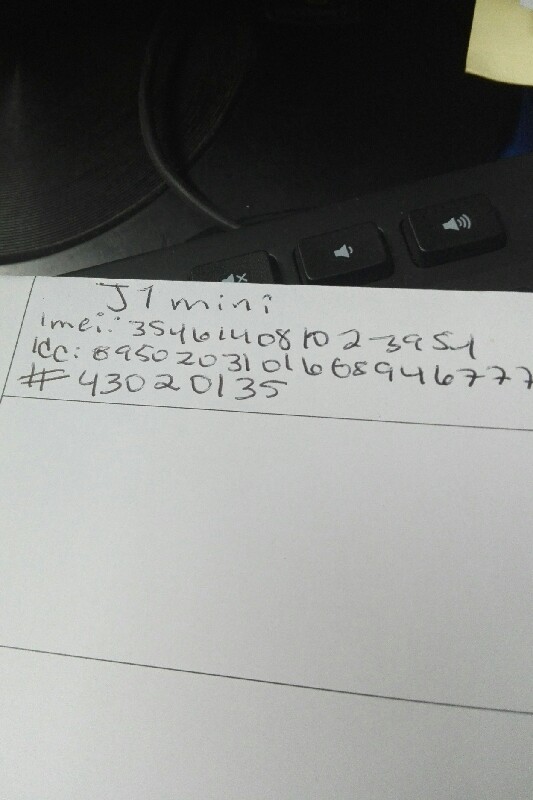 J1 mini
Imei: 354614081023954
ICC: 8950203101668946777
# 43020135